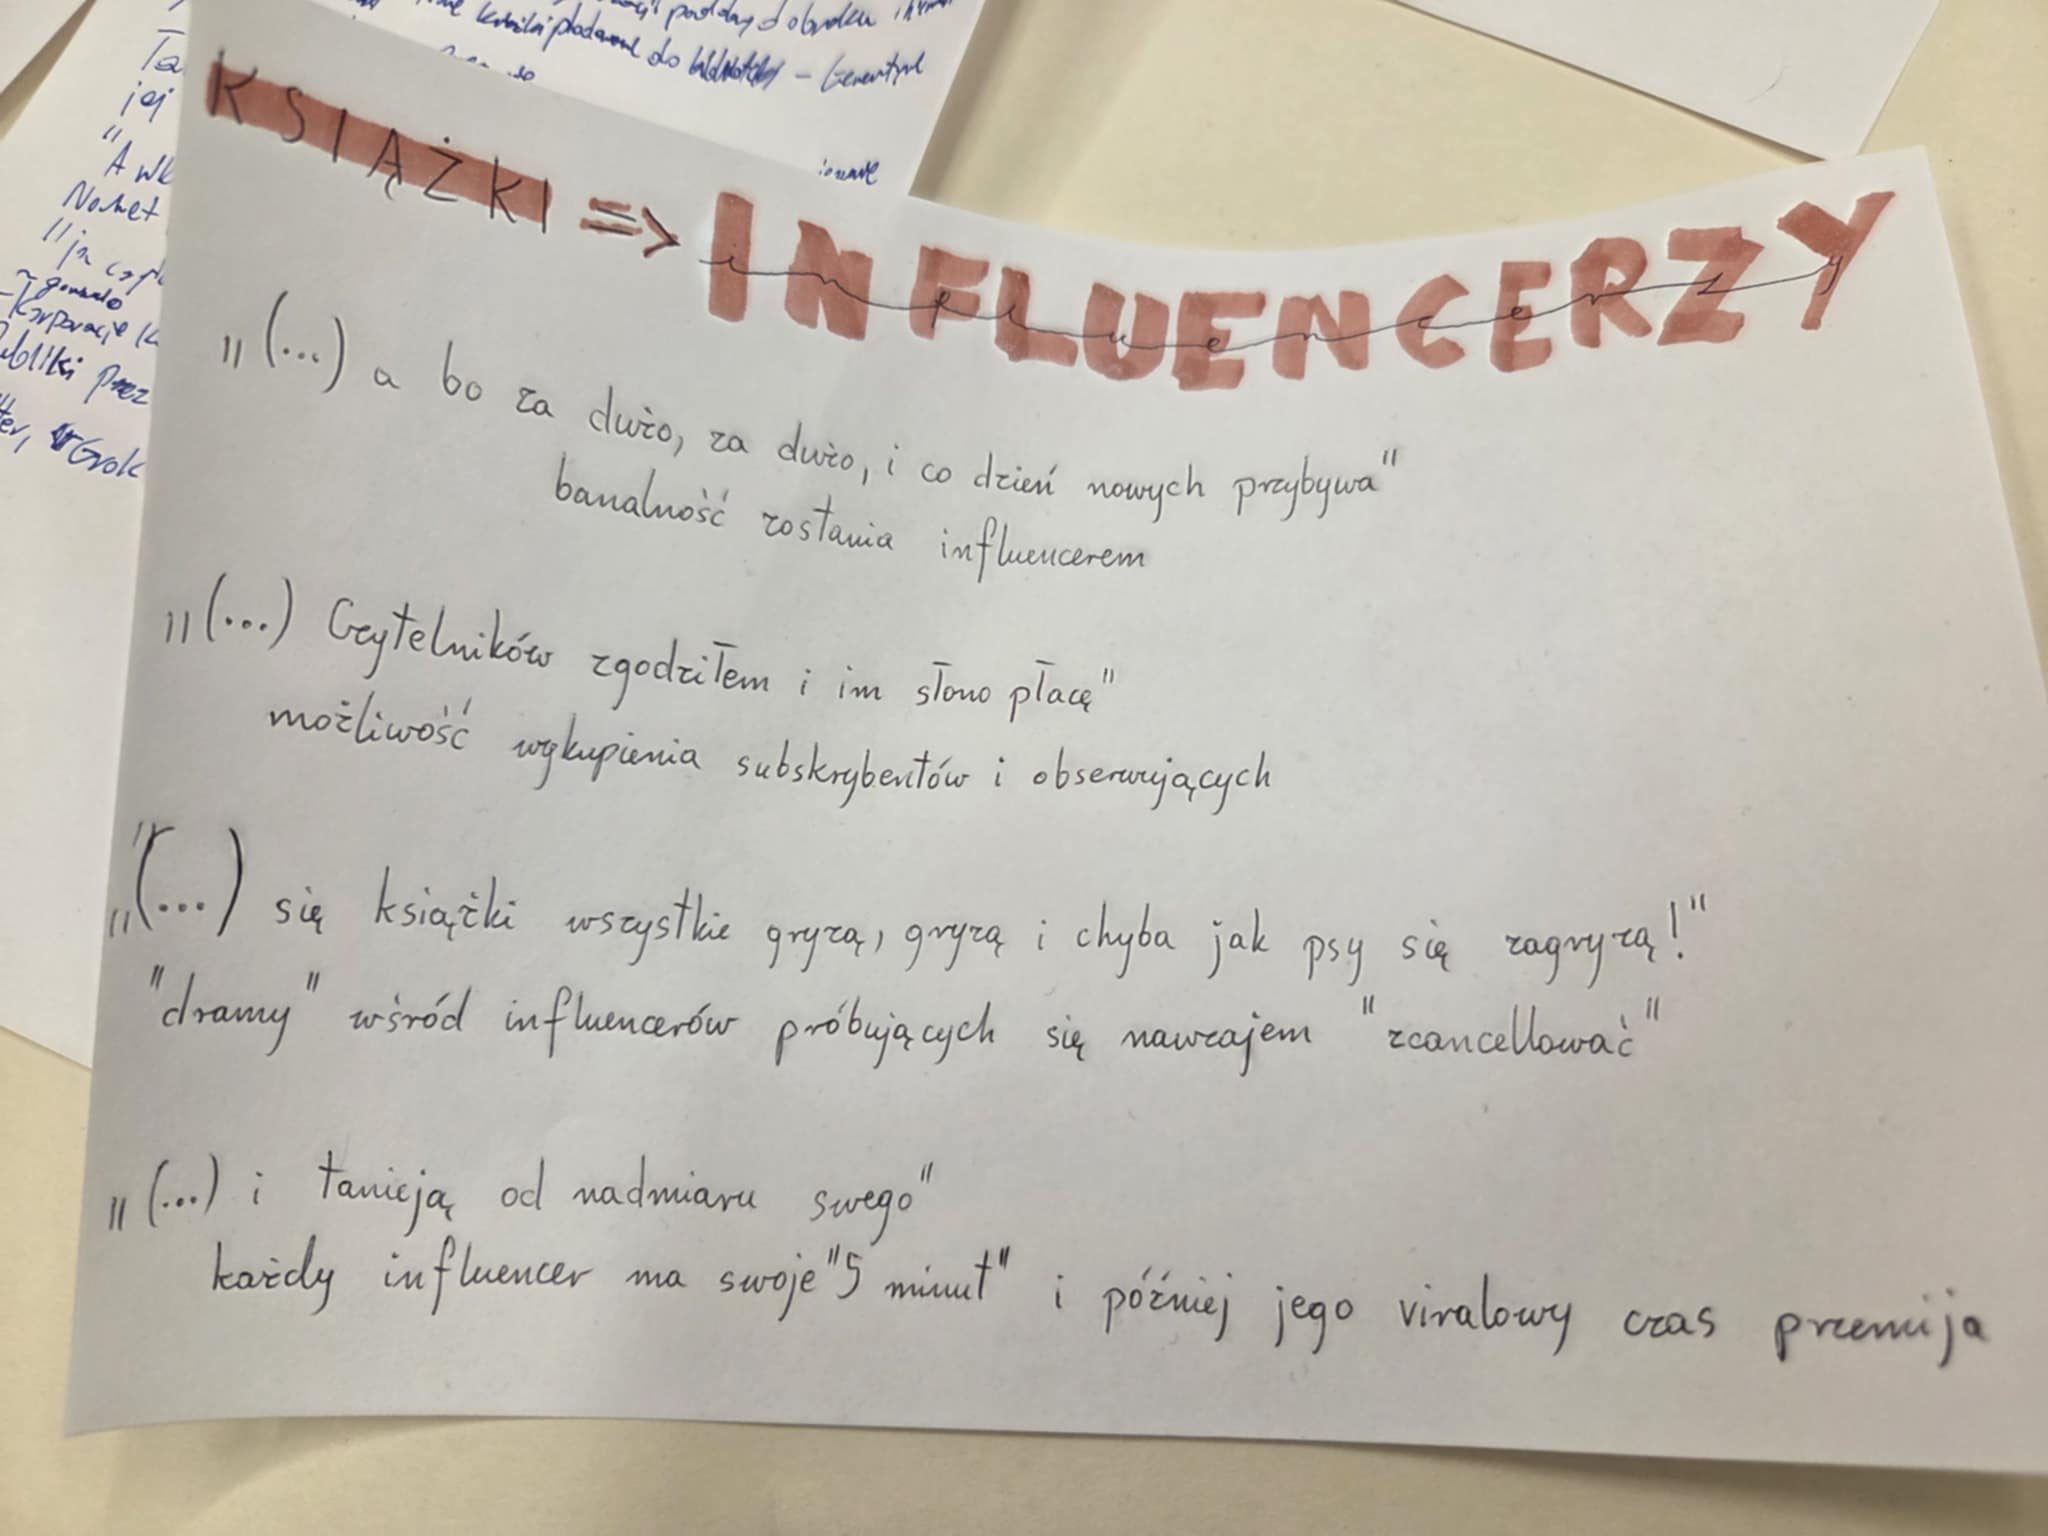 poddany d obroku
książki podawane do
Ta
jej
"A wk
"ja
Korporacje
przez
Grok
KSIĄŻKI => INFLUENCERZY
influencerzy
„(...) a bo za dużo, za dużo, i co dzień nowych przybywa"
banalność zostania influencerem
„(...) Czytelników zgodziłem i im słono płacę"
możliwość wykupienia subskrybentów i obserwujących
„(...) się książki wszystkie gryzą, gryzą i chyba jak psy się zagryzą!"
"dramy" wśród influencerów próbujących się nawzajem "zcancellować"
„(...) i tanieją od nadmiaru swego"
każdy influencer ma swoje "5 minut" i później jego viralowy czas przemija